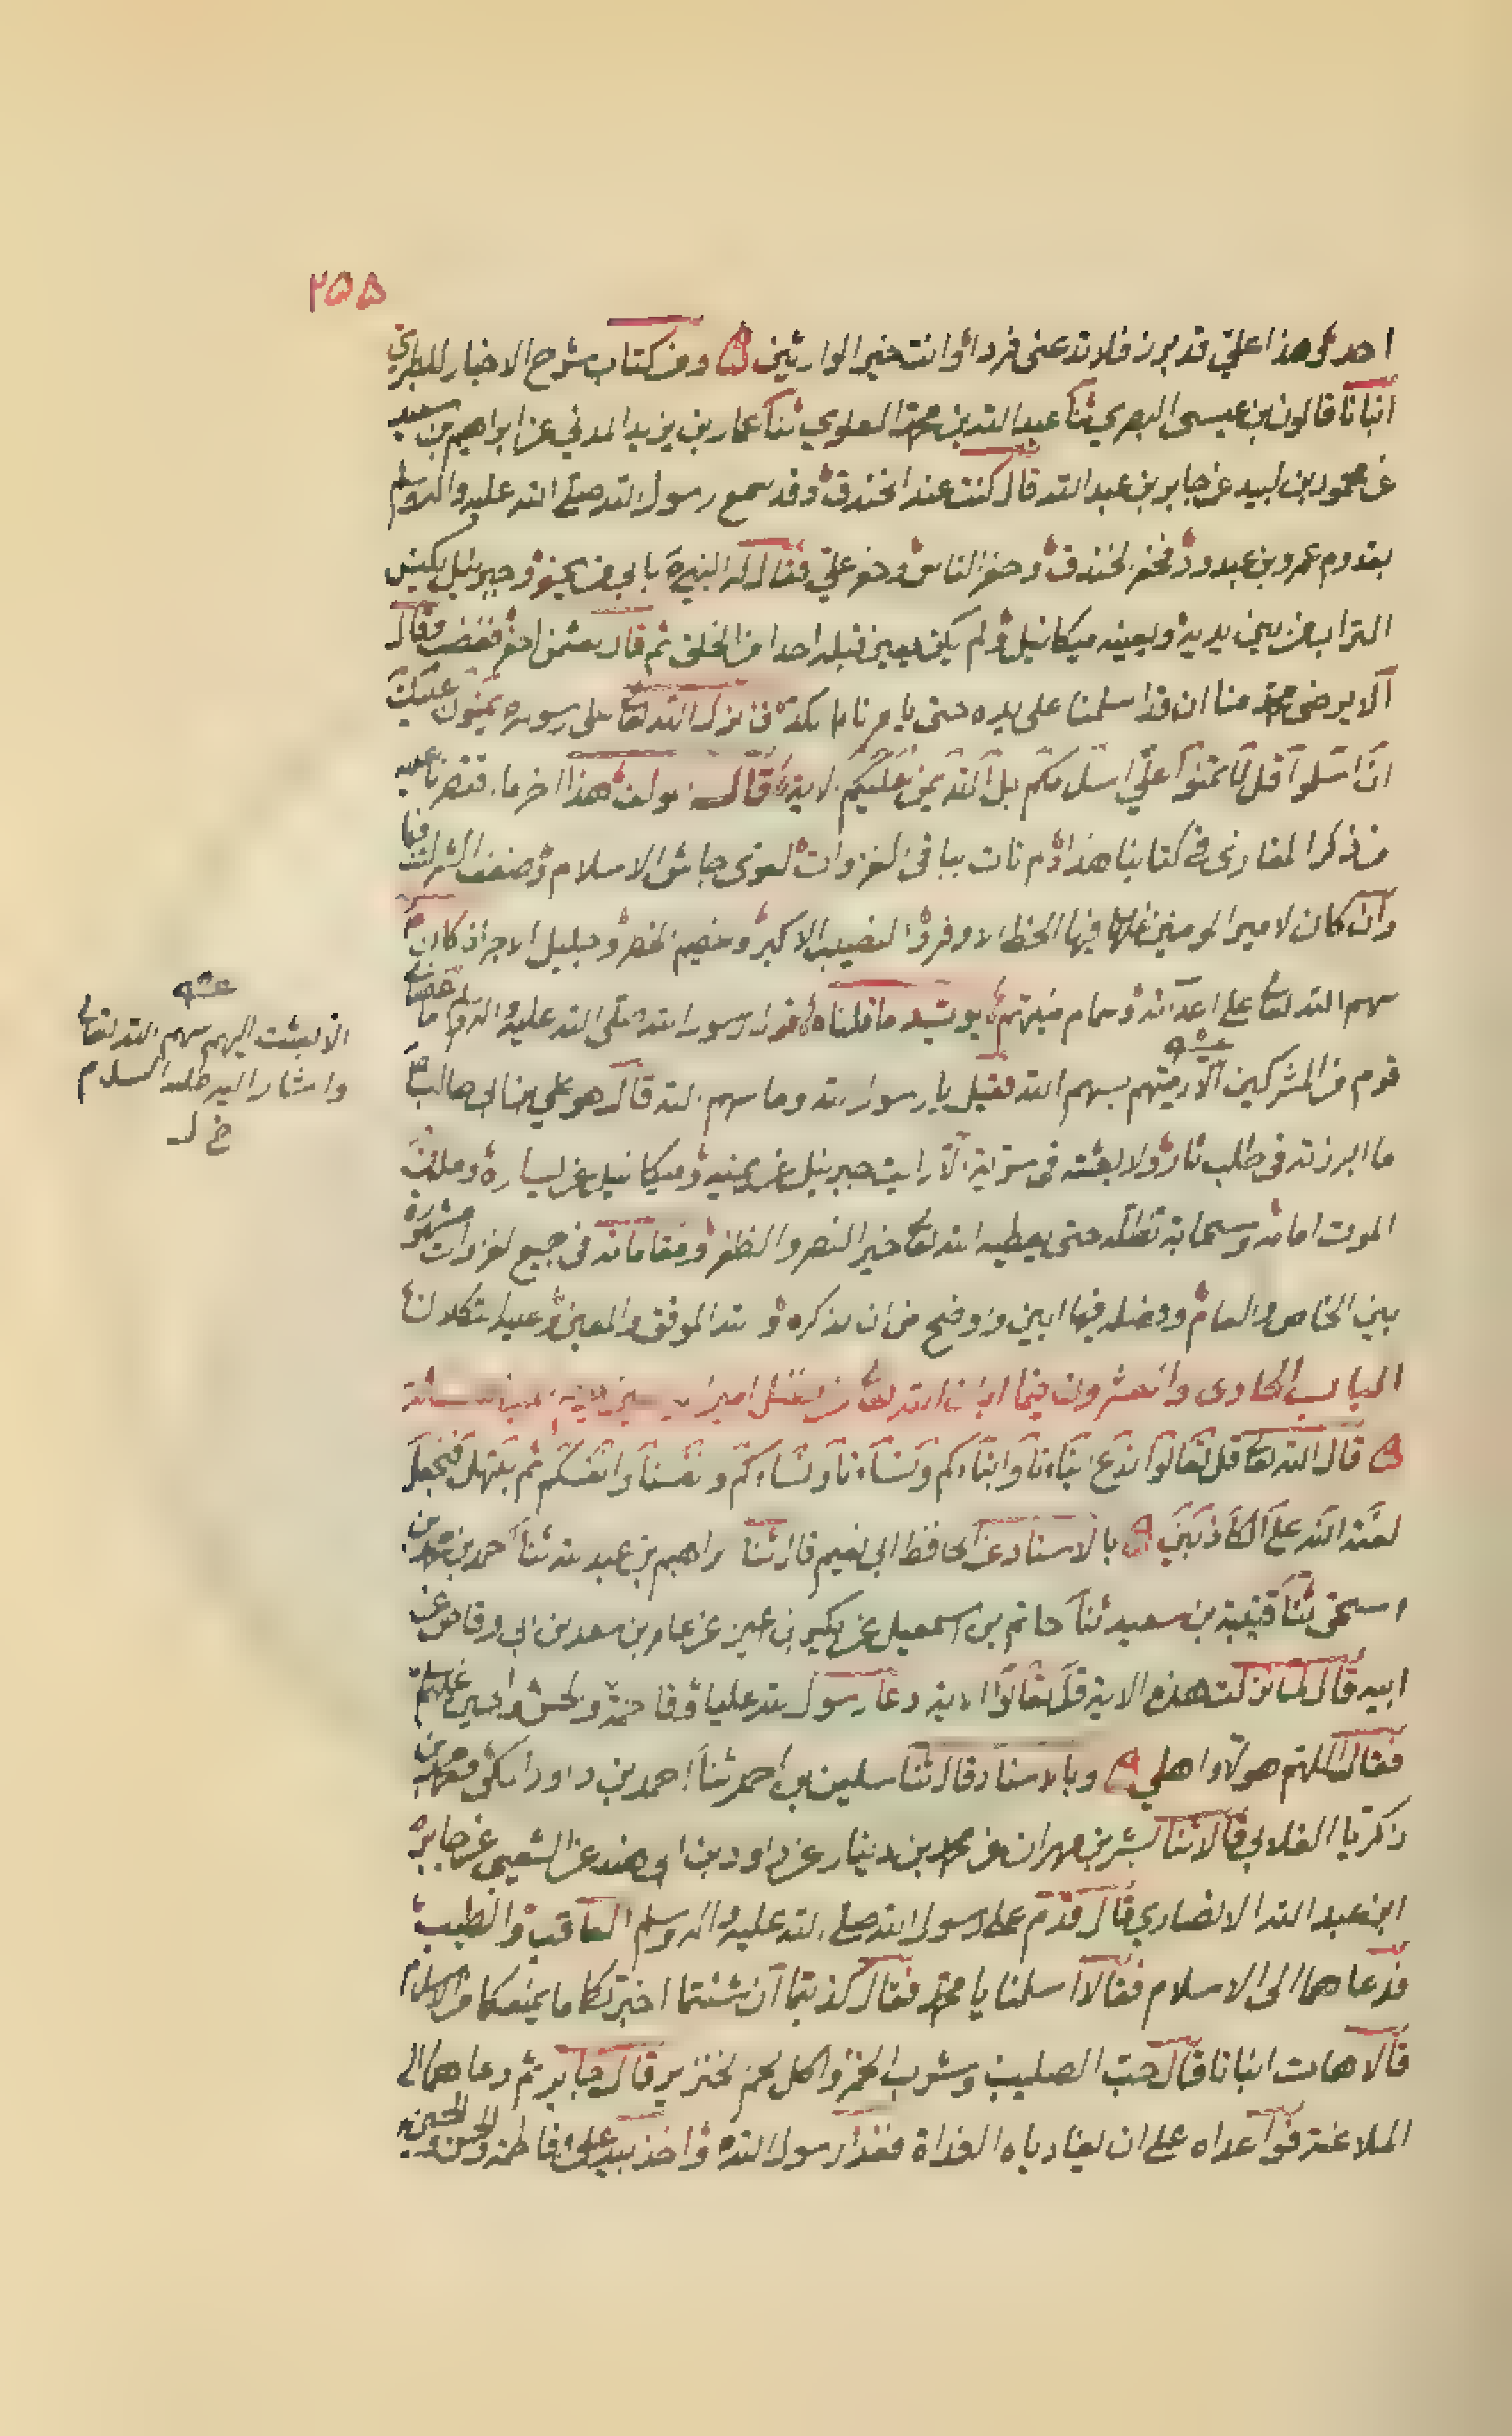 ٢٥٥
احد وهذا علي قد برز فلا تدعني فردا وانت خير الوارثين ومن كتاب شرح الاخبار للطبري
انبانا قالون بن عيسى البصري ثنا عبد الله بن محمد العلوي ثنا عمار بن يزيد المدني عن ابراهيم بن سعيد
عن محمود بن لبيد عن جابر بن عبد الله قال كنت عند الخندق وقد سمع رسول الله صلى الله عليه واله وسلم
بقدوم عمرو بن عبد ود فحفر الخندق وحفر الناس وحفر علي فقال له النبي بابي من يحفر وجبرئيل يكنس
التراب من بين يديه ويعينه ميكائيل ولم يكن يعين قبله احدا من الخلق ثم قال لعثمن احفر فغضب وقال
الا يرضى محمد منا ان قد اسلمنا على يده حتى يامرنا بالكد فانزل الله تعا على رسوله يمنون عليك
ان اسلموا قل لا تمنوا علي اسلامكم بل الله يمن عليكم الاية قال المؤلف هذا اخر ما اقتصرنا عليه
من ذكر المغازي في كتابنا هذا ولم نات بباقي الغزوات لقوى جاش الاسلام وضعف الشرك فيها
وان كان لامير المومنين فيها الحظ الاوفر والنصيب الاكبر وعظيم الخطر وجليل الاجر اذ كان
سهم الله تعا على اعدائه وسمام منيتهم يؤيد ما قلناه قول رسول الله صلى الله عليه واله وسلم ما عصاني
قوم من المشركين الا رميتهم بسهم الله فقيل يا رسول الله وما سهم الله قال هو علي بن ابي طالب
ما ابرزته في طلب ثار ولا بعثته في سرية الا رايت جبرئيل عن يمينه وميكائيل عن يساره وملك
الموت امامه وسحابة تظله حتى يعطيه الله تعا خير النصر والظفر ومقاماته في جميع الغزوات مشهورة
بين الخاص والعام وفضله فيها ابين واوضح من ان نذكره والله الموفق والمعين وعليه التكلان
الباب الحادي والعشرون فيما ابان الله تعا من فضل امير المومنين
قال الله تعا قل تعالوا ندع ابناءنا وابناءكم ونساءنا ونساءكم وانفسنا وانفسكم ثم نبتهل فنجعل
لعنة الله على الكاذبين بالاسناد عن الحافظ ابي نعيم قال ثنا ابراهيم بن عبد الله ثنا احمد بن محمد بن
اسحق ثنا قتيبة بن سعيد ثنا حاتم بن اسمعيل عن بكير بن عن عامر بن سعد بن ابي وقاص عن
ابيه قال لما نزلت هذه الاية قل تعالوا الاية دعا رسول الله عليا وفاطمة والحسن والحسين عليهم السلام
فقال اللهم هولاء اهلي وبالاسناد قال ثنا سليمن بن احمد ثنا احمد بن داود المكي ومحمد بن
زكريا الغلابي قالا ثنا بشر بن مهران عن محمد بن دينار عن داود بن ابي هند عن الشعبي عن جابر
ابن عبد الله الانصاري قال قدم على رسول الله صلى الله عليه واله وسلم العاقب والطيب
فدعاهما الى الاسلام فقالا اسلمنا يا محمد فقال كذبتما ان شئتما اخبرتكما ما يمنعكما من الاسلام
قالا هات انبانا قال حب الصليب وشرب الخمر واكل لحم الخنزير قال جابر ثم دعاهما الى
الملاعنة فواعداه على ان يغادياه الغداة فغدا رسول الله واخذ بيد علي وفاطمة والحسن والحسين
الا بعثت اليهم سهم الله تعالى
واشار اليه عليه السلام
خ ل